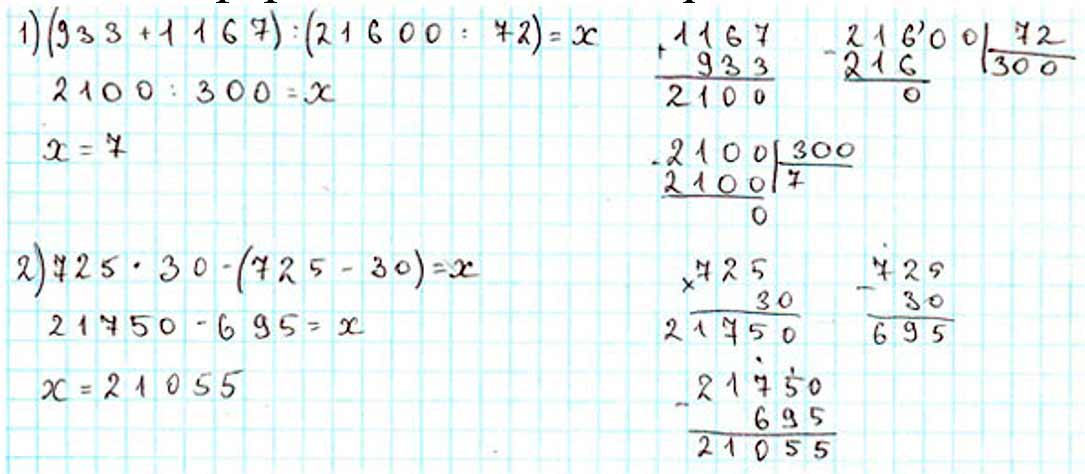 1) (933 + 1167) : (21600 : 72) = x
2100 : 300 = x
x = 7
+ 1167
933
2100
- 216'00 | 72
216 | 300
0
- 2100 | 300
2100 | 7
0
2) 725 · 30 - (725 - 30) = x
21750 - 695 = x
x = 21055
× 725
30
21750
- 725
30
695
- 21750
695
21055